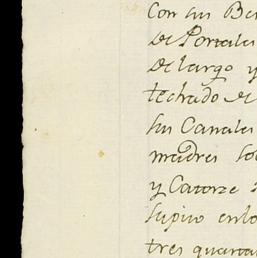 Con sus
de Portales
de largo y
techado de
sus Canales
madres
y Catorze
supino
tres quarta